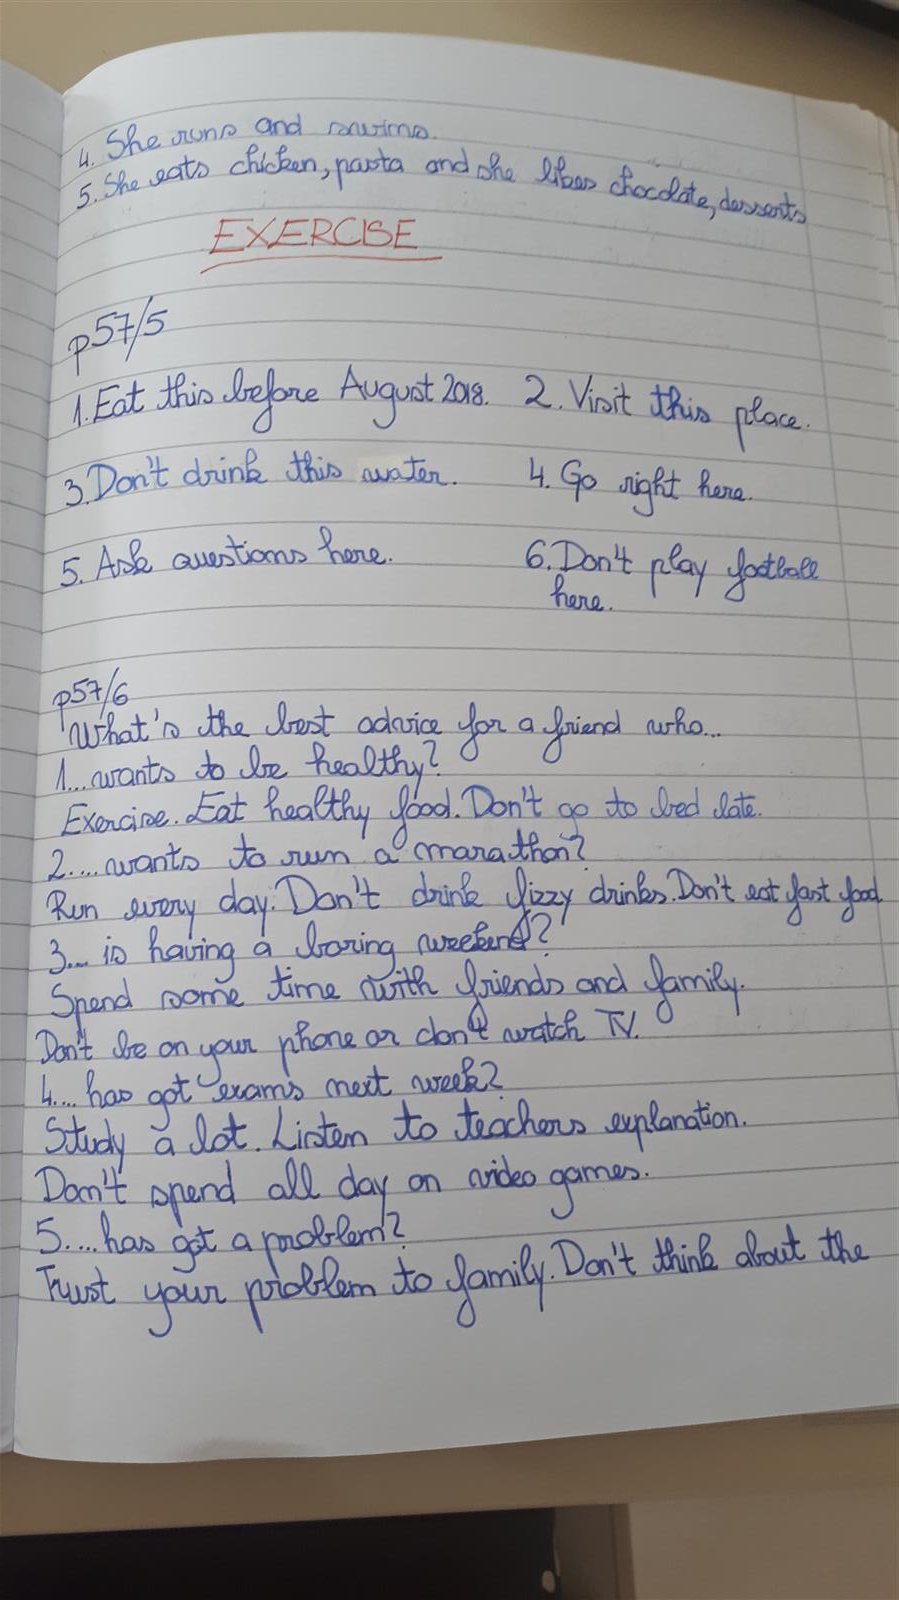 4. She runs and swims.
5. She eats chicken, pasta and she likes chocolate, desserts
EXERCISE
p57/5
1. Eat this before August 2018. 2. Visit this place.
3. Don't drink this water. 4. Go right here.
5. Ask questions here. 6. Don't play football
here.
p57/6
What's the best advice for a friend who...
1... wants to be healthy?
Exercise. Eat healthy food. Don't go to bed late.
2.... wants to run a marathon?
Run every day. Don't drink fizzy drinks. Don't eat fast food.
3... is having a boring weekend?
Spend some time with friends and family.
Don't be on your phone or don't watch TV.
4.... has got exams next week?
Study a lot. Listen to teachers explanation.
Don't spend all day on video games.
5.... has got a problem?
Trust your problem to family. Don't think about the